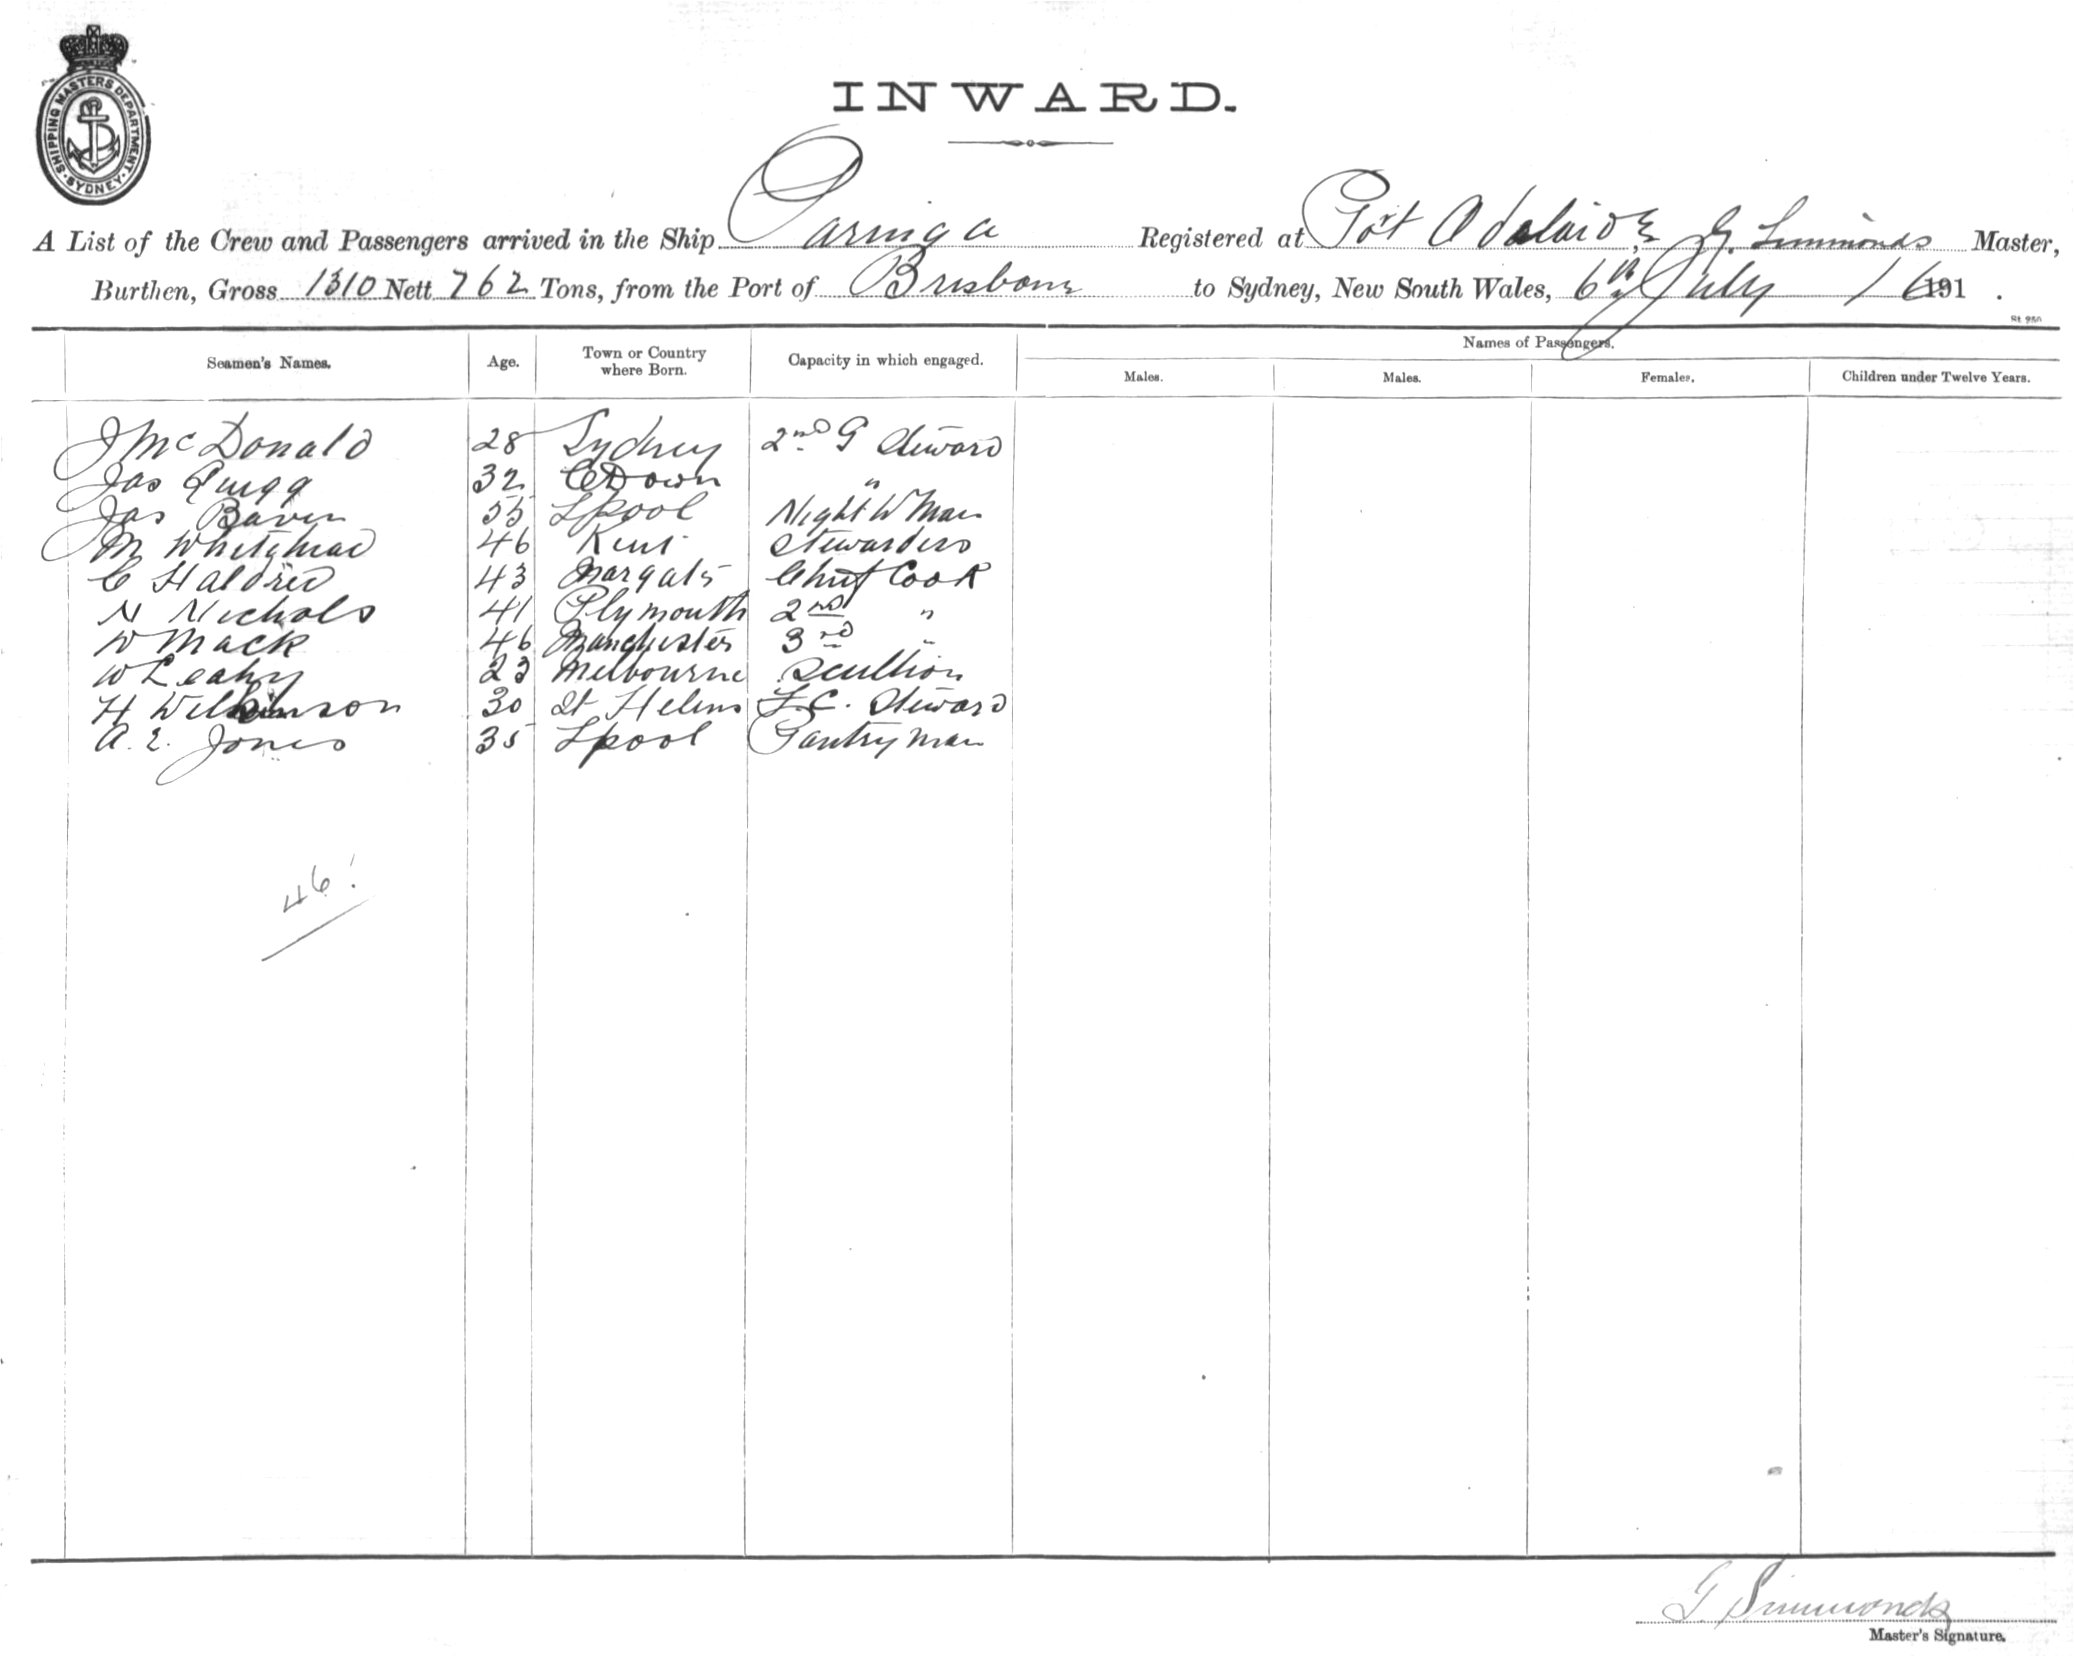 SHIPPING MASTERS DEPARTMENT. SYDNEY.
INWARD.
A List of the Crew and Passengers arrived in the Ship Paringa Registered at Port Adelaide, G. Simmonds Master,
Burthen, Gross 1310 Nett 762 Tons, from the Port of Brisbane to Sydney, New South Wales, 6th July 16 191 .
St 950
Names of Passengers.
Seamen's Names. Age. Town or Country where Born. Capacity in which engaged. Males. Males. Females. Children under Twelve Years.
J McDonald 28 Sydney 2nd G Steward
Jas Quigg 32 Co Down "
Jas Baven 55 Lpool Night W Man
M Whitehead 46 Kent Stewardess
C Haldred 43 Margate Chief Cook
N Nichols 41 Plymouth 2nd "
W Mack 46 Manchester 3rd "
W Leahy 23 Melbourne Scullion
H Wilkinson 30 St Helens F.C. Steward
A. E. Jones 35 Lpool Pantryman
46
G Simmonds
Master's Signature.